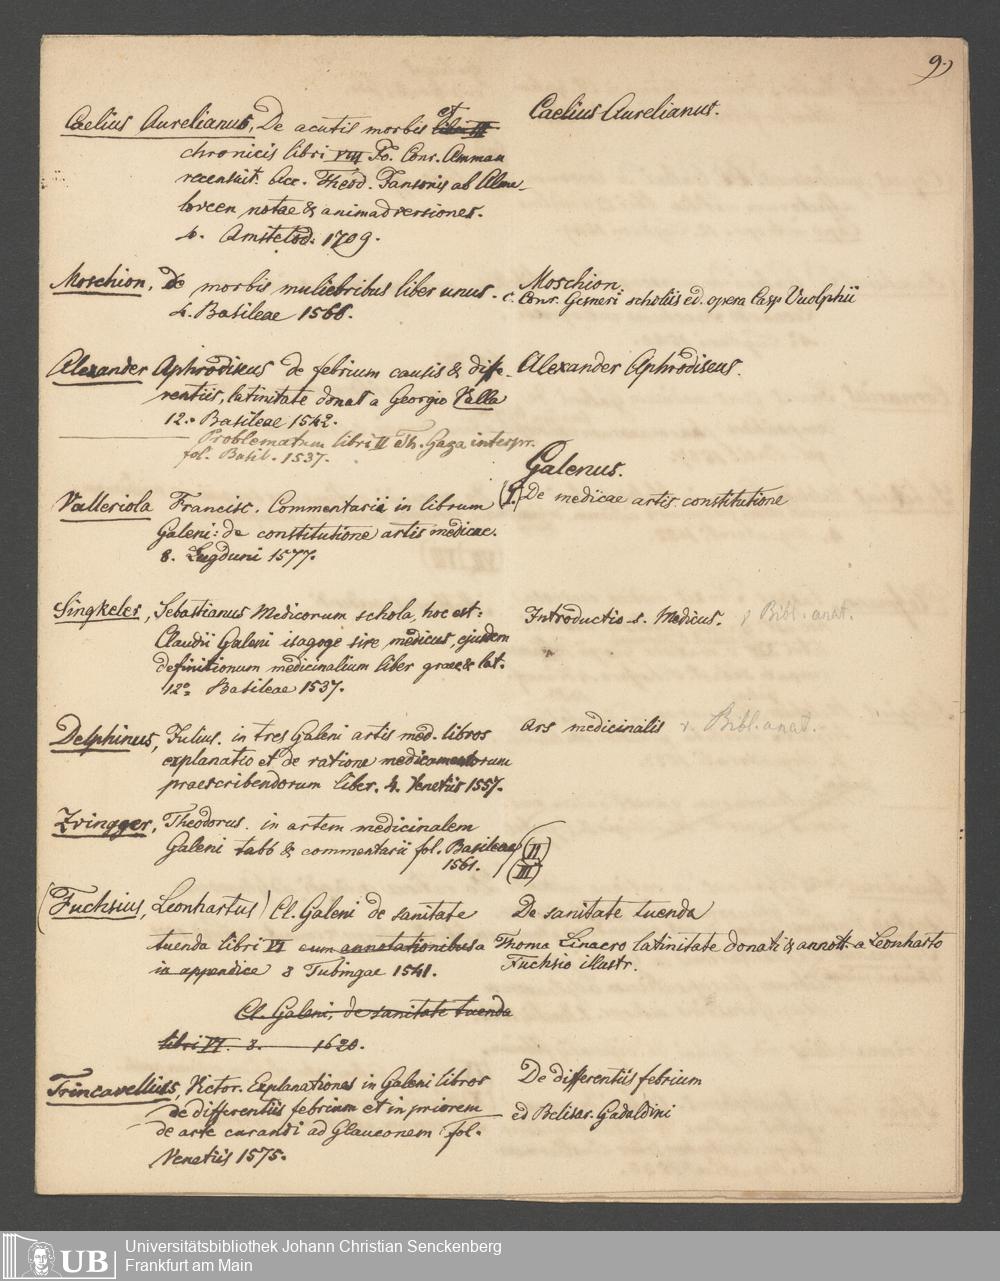 9.)
Caelius Aurelianus, De acutis morbis libri III et
Caelius Aurelianus.
chronicis libri VIII Jo. Conr. Amman
recensuit. Acc. Theod. Jansonis ab Alme-
loveen notae & animadversiones.
4. Amstelod. 1709.
Moschion, de morbis muliebribus liber unus. c. Conr. Gesneri scholiis ed. opera Casp Vuolphii
Moschion.
4. Basileae 1566.
Alexander Aphrodiseus de febrium causis & diffe-
Alexander Aphrodiseus.
rentiis, latinitate donat a Georgio Valla
12.° Basileae 1542.
Problematum libri II Th. Gaza interpr.
fol. Basil. 1537.
Galenus.
Valleriola Francisc. Commentarii in librum
(I.) De medicae artis constitutione
Galeni: de constitutione artis medicae.
8. Lugduni 1577.
Singkeler, Sebastianus Medicorum schola, hoc est:
Introductio s. Medicus. v Bibl. anat.
Claudii Galeni isagoge sive medicus, ejusdem
definitionum medicinalium liber graec & lat.
12° Basileae 1537.
Delphinus, Julius. in tres Galeni artis med. libros
Ars medicinalis v. Bibl. anat.
explanatio et de ratione medicamentorum
praescribendorum liber. 4. Venetiis 1557.
Zvingger, Theodorus. in artem medicinalem
Galeni tabb & commentarii fol. Basileae
1561.
(II)
(III)
(Fuchsius, Leonhartus) Cl. Galeni de sanitate
De sanitate tuenda
tuenda libri VI cum annotationibus a Thoma Linacro latinitate donati & annott. a Leonharto
in appendice 8 Tubingae 1541.
Fuchsio illustr.
Cl. Galeni, de sanitate tuenda
libri VI. 8. 1620.
Trincavellius, Victor. Explanationes in Galeni libros
De differentiis febrium
de differentiis febrium et in priorem
ed Belisar. Gadaldini
de arte curandi ad Glauconem fol.
Venetiis 1575.
UB
Universitätsbibliothek Johann Christian Senckenberg
Frankfurt am Main